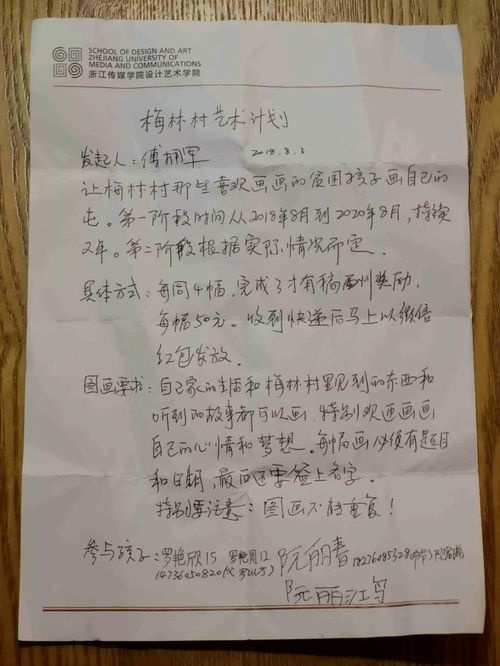 SCHOOL OF DESIGN AND ART
ZHEJIANG UNIVERSITY OF
MEDIA AND COMMUNICATIONS
浙江传媒学院设计艺术学院
梅林村艺术计划
发起人：傅拥军 2018.8.2
让梅林村那些喜欢画画的贫困孩子画自己的
屯。第一阶段时间从2018年8月到2020年8月，持续
2年。第二阶段根据实际情况而定。
具体方式：每周4幅，完成了才有稿酬奖励，
每幅50元。收到快递后马上以微信
红包发放。
图画要求：自己家的生活和梅林村里见到的东西和
听到的故事都可以画，特别欢迎画画
自己的心情和梦想。每幅画必须有题目
和日期，最后还要签上名字。
特别要注意：图画不能重复！
参与孩子：罗艳欣15 罗艳月12 阮丽春 18276085328
14736050820
阮丽江